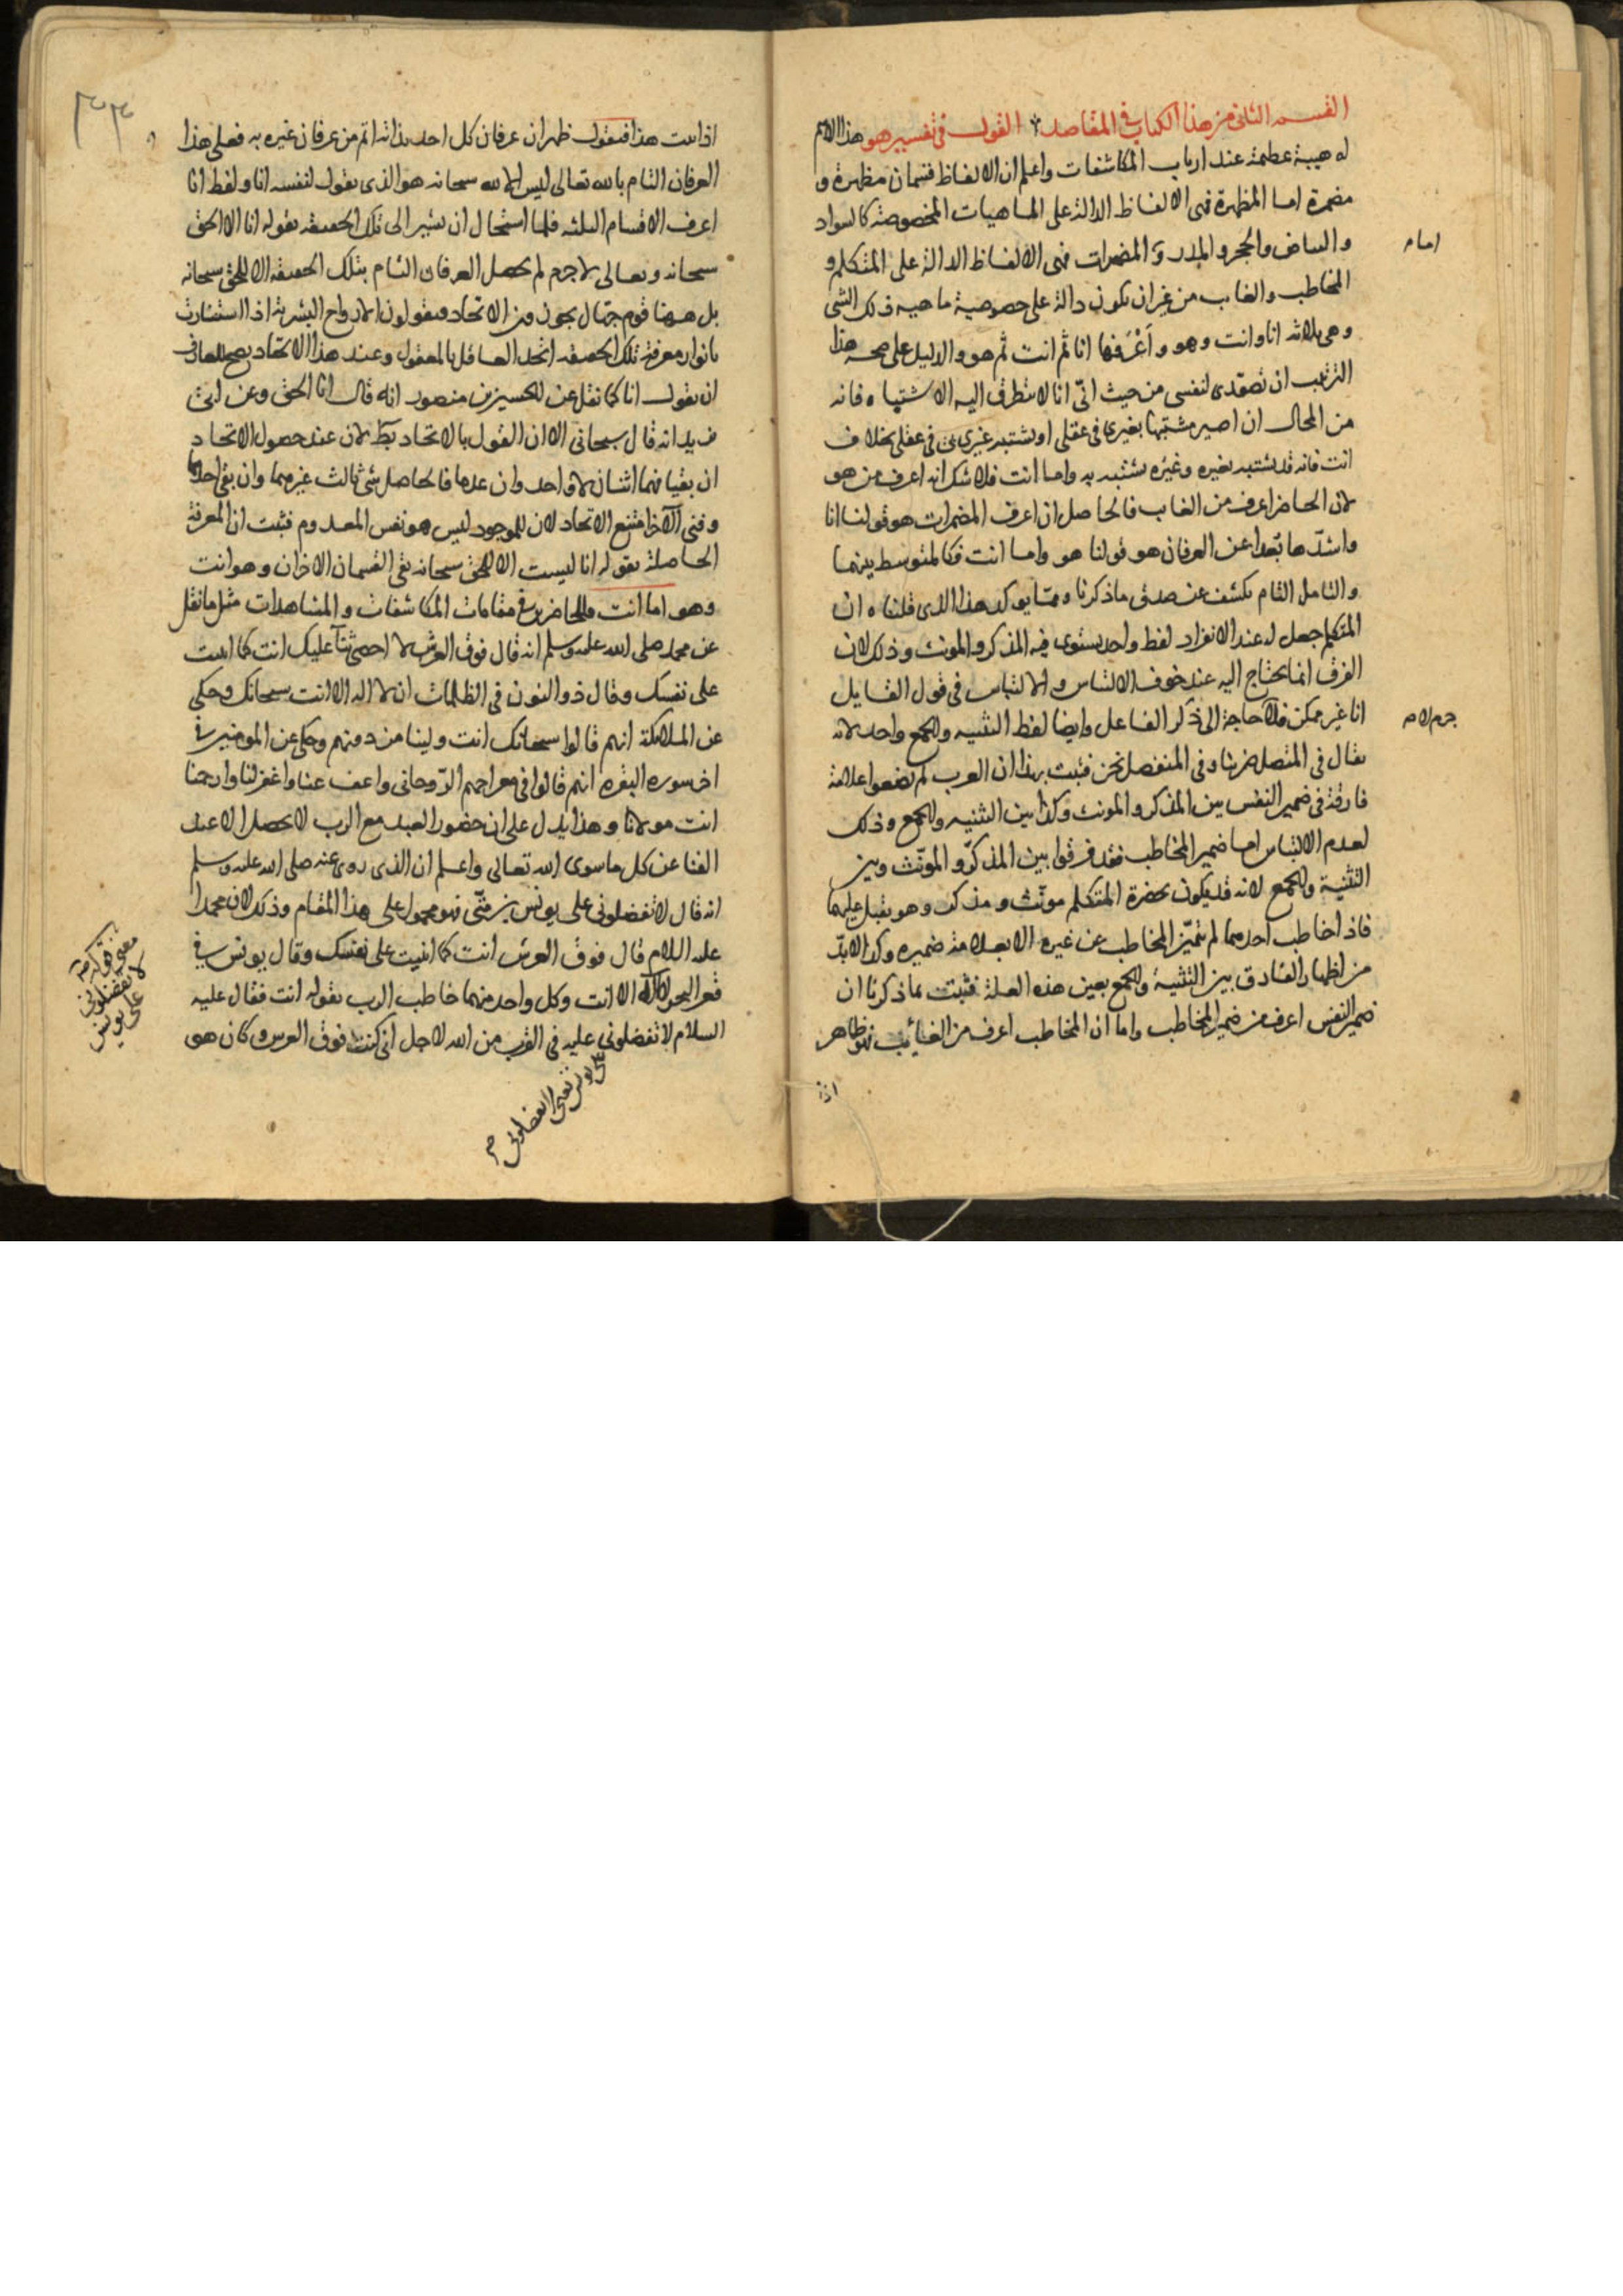 القسم الثانى من هذا الكتاب فى المقاصد القول فى تفسير هو هذا الاسم
له هيبة عظيمة عند ارباب المكاشفات واعلم ان الالفاظ قسمان مظهرة و
مضمرة اما المظهرة فهى الالفاظ الدالة على الماهيات المخصوصة كالسواد
والبياض والحجر والمدر و المضمرات فهى الالفاظ الدالة على المتكلم و
اما م
المخاطب والغايب من غير ان تكون دالة على خصوصية ماهية ذلك الشى
وهى ثلاثه انا وانت وهو واَعْرَفها انا ثم انت ثم هو والدليل على صحة هذا
الترتيب ان تصوّرى لنفسى من حيث انّى انا لا يتطرق اليه الاشتباه فانه
من المحال ان اصير مشتبها بغيرى فى عقلى او يشتبه غيرى بى فى عقلى بخلاف
انت فانه قد يشتبه بغيره وغيره يشتبه به واما انت فلا شك انه اعرف من هو
لان الحاضر اعرف من الغايب فالحاصل ان اعرف المضمرات هو قولنا انا
واشدّها بعدا عن العرفان هو قولنا هو واما انت فكالمتوسط بينهما
والتامل التام يكشف عن صدق ما ذكرنا ومما يوكد هذا الذى قلناه ان
المتكلم جعل له عند الانفراد لفظ واحد يستوى فيه المذكر والمونث وذلك لان
الفرق انما يحتاج اليه عند خوف الالتباس والالتباس فى قول القايل
انا غير ممكن فلا حاجة الى ذكر الفاعل وايضا لفظ التثنيه والجمع واحد لانه
جرم لام م
يقال فى المتصل ضربنا وفى المنفصل نحن فثبت بهذا ان العرب لم يضعوا علامة
فارقة فى ضمير النفس بين المذكر والمونث وكذا بين التثنيه والجمع وذلك
لعدم الالتباس اما ضمير المخاطب فقد فرقوا بين المذكّر والمونّث وبين
التثنية والجمع لانه قد يكون بحضرة المتكلم مونّث ومذكر وهو يقبل عليهما
فاذا خاطب احدهما لم يتميّز المخاطب عن غيره الا بعلامة ضميره وكذا لابدّ
من اظهار الفارق بين التثنية والجمع بعين هذه العلة فثبت بما ذكرنا ان
ضمير النفس اعرف من ضمير المخاطب واما ان المخاطب اعرف من الغائب فهو ظاهر
اذا
٣٣
اذا ثبت هذا فنقول ظهر ان عرفان كل احد بذاته اتم من عرفان غيره به فعلى هذا
العرفان التام بالله تعالى ليس الا لله سبحانه هو الذى يقول لنفسه انا ولفظ انا
اعرف الاقسام الثلثه فلما استحال ان يشير الى تلك الحقيقة بقوله انا الا الحق
سبحانه وتعالى لا جرم لم يحصل العرفان التام بتلك الحقيقة الا للحق سبحانه
بل ههنا قوم جهال يجوزون الاتحاد ويقولون الارواح البشرية اذا استنارت
بانوار معرفة تلك الحقيقة اتحد العاقل بالمعقول وعند هذا الاتحاد يصح للعارف
ان يقول انا كما نقل عن الحسين بن منصور انه قال انا الحق وعن ابى
يزيد انه قال سبحانى الا ان القول بالاتحاد بط لان عند حصول الاتحاد
ان بقيا فهما اثنان لا واحد وان عدما فالحاصل شى ثالث غيرهما وان بقى احدهما
وفنى الآخر امتنع الاتحاد لان الموجود ليس هو نفس المعدوم فثبت ان المعرفة
الحاصلة بقوله انا ليست الا للحق سبحانه بقى القسمان الاخران وهو انت
وهو اما انت فللحاضرين فى مقامات المكاشفات والمشاهدات مثل ما نقل
عن محمد صلى الله عليه وسلم انه قال فوق العرش لا احصى ثنآ عليك انت كما اثنيت
على نفسك وقال ذو النون فى الظلمات ان لا اله الا انت سبحانك وحكى
عن الملائكة انهم قالوا سبحانك انت ولينا من دونهم وحكى عن المومنين فى
اخر سورة البقره انهم قالوا فى معراجهم الرّوحانى واعف عنا واغفر لنا وارحمنا
انت مولانا وهذا يدل على ان حضور العبد مع الرب لا يحصل الا عند
الفنا عن كل ما سوى الله تعالى واعلم ان الذى روى عنه صلى الله عليه وسلم
انه قال لا تفضلونى على يونس بن متّى فهو محمول على هذا المقام وذلك لان محمدا
عليه السلام قال فوق العرش انت كما اثنيت على نفسك وقال يونس فى
قعر البحر لا اله الا انت وكل واحد منهما خاطب الرب بقوله انت فقال عليه
السلام لا تفضلونى عليه فى القرب من الله لاجل انى كنت فوق العرش وكان هو
معنى قوله م
لا تفضلونى
على يونس